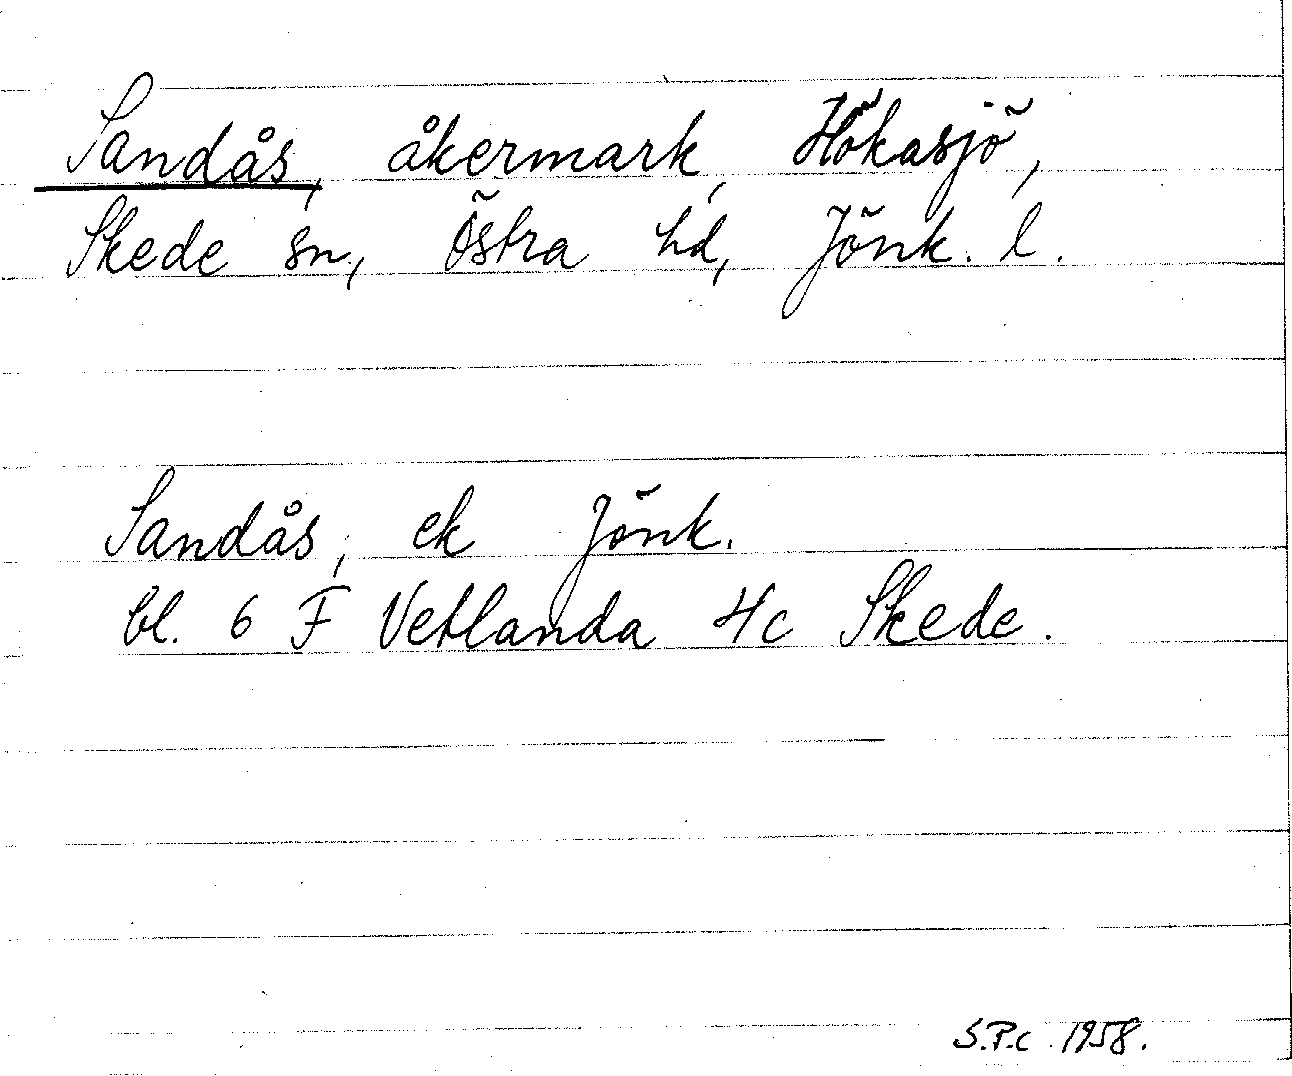 Sandås, åkermark, Hökasjö,
Skede sn, Östra hd, Jönk. l.
Sandås, ek Jönk.
bl. 6 F Vetlanda 4c Skede.
S.P.c 1958.